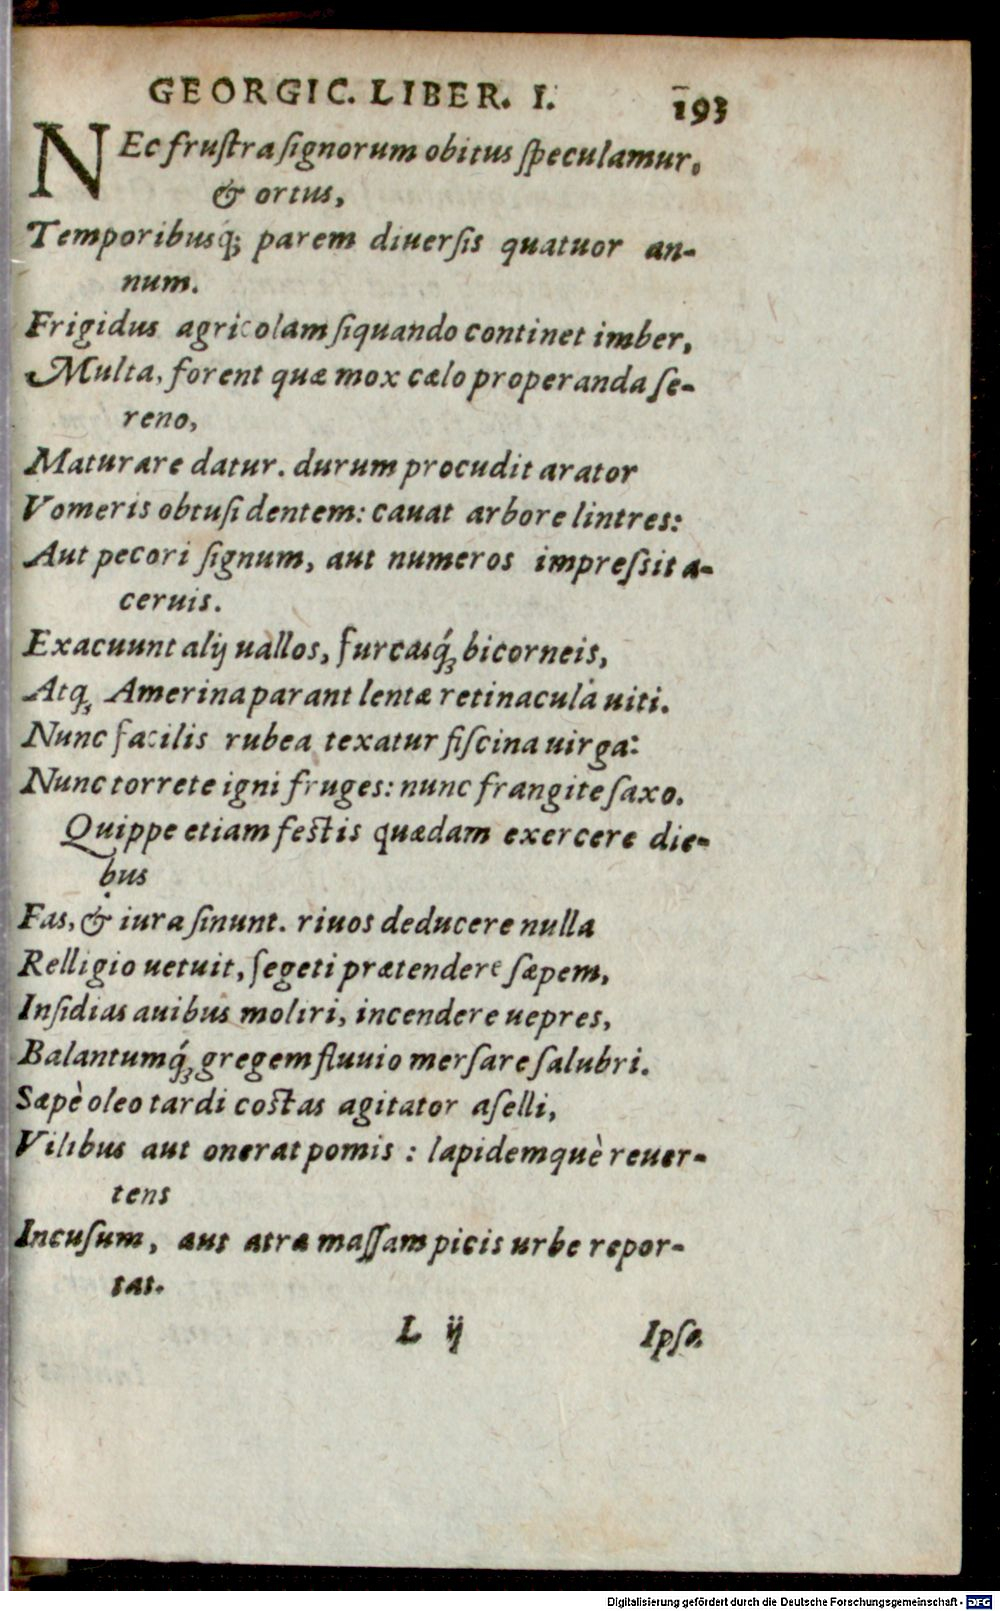 GEORGIC. LIBER. I. 193
NEc frustra signorum obitus speculamur,
& ortus,
Temporibusq́; parem diuersis quatuor an-
num.
Frigidus agricolam siquando continet imber,
Multa, forent quæ mox cælo properanda se-
reno,
Maturare datur. durum procudit arator
Vomeris obtusi dentem: cauat arbore lintres:
Aut pecori signum, aut numeros impressit a-
ceruis.
Exacuunt alij uallos, furcasq́; bicorneis,
Atq; Amerina parant lentæ retinacula uiti.
Nunc facilis rubea texatur fiscina uirga:
Nunc torrete igni fruges: nunc frangite saxo.
Quippe etiam festis quædam exercere die-
bus
Fas, & iura sinunt. riuos deducere nulla
Relligio uetuit, segeti prætendere sæpem,
Insidias auibus moliri, incendere uepres,
Balantumq́; gregem fluuio mersare salubri.
Sæpè oleo tardi costas agitator aselli,
Vilibus aut onerat pomis : lapidemquè reuer-
tens
Incusum, aut atræ massam picis urbe repor-
tat.
L ij Ipsa
Digitalisierung gefördert durch die Deutsche Forschungsgemeinschaft - DFG